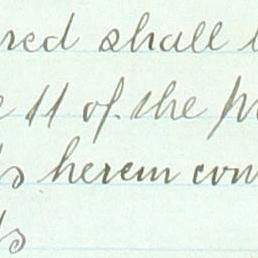 red shall
11 of the
herein con